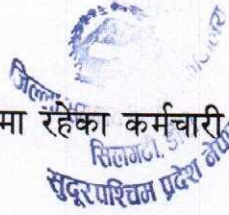 जिल्ला
मा रहेका कर्मचारी
सिलगढी,
सुदूरपश्चिम प्रदेश नेपाल